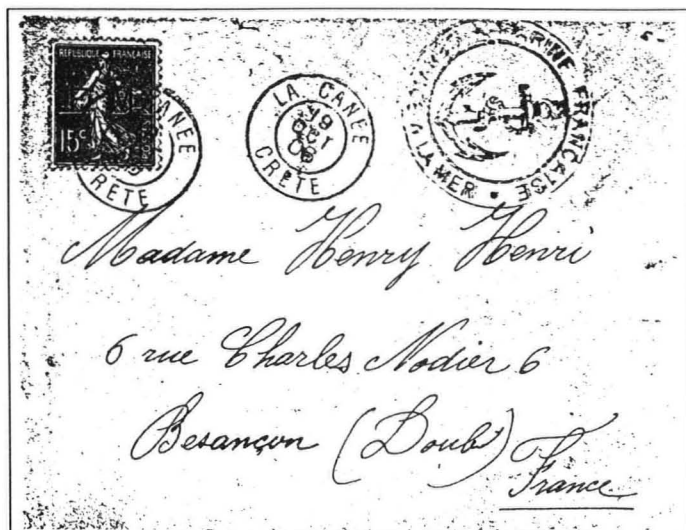 REPUBLIQUE FRANÇAISE
15c
CANEE
CRETE
LA CANEE
19
OCT
06
CRETE
MARINE FRANÇAISE
A LA MER
Madame Henry Henri
6 rue Charles Nodier 6
Besançon (Doubs)
France